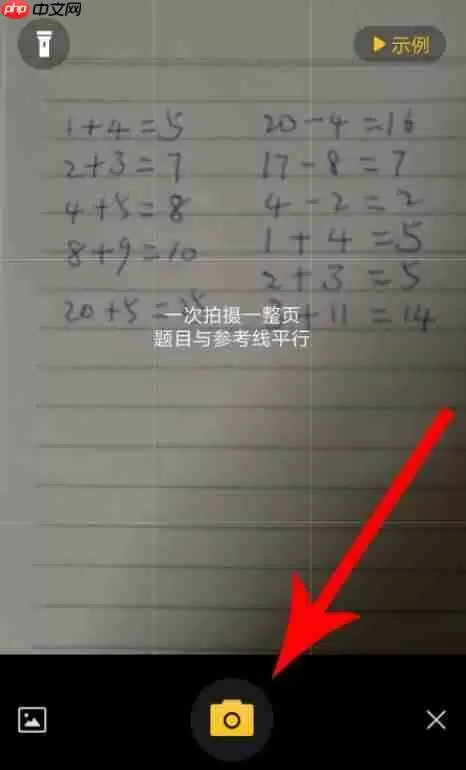 php 中文网
示例
1+4=5
20-4=16
2+3=7
17-8=7
4+5=8
4-2=2
8+9=10
1+4=5
2+3=5
20+5=
+11=14
一次拍摄一整页
题目与参考线平行